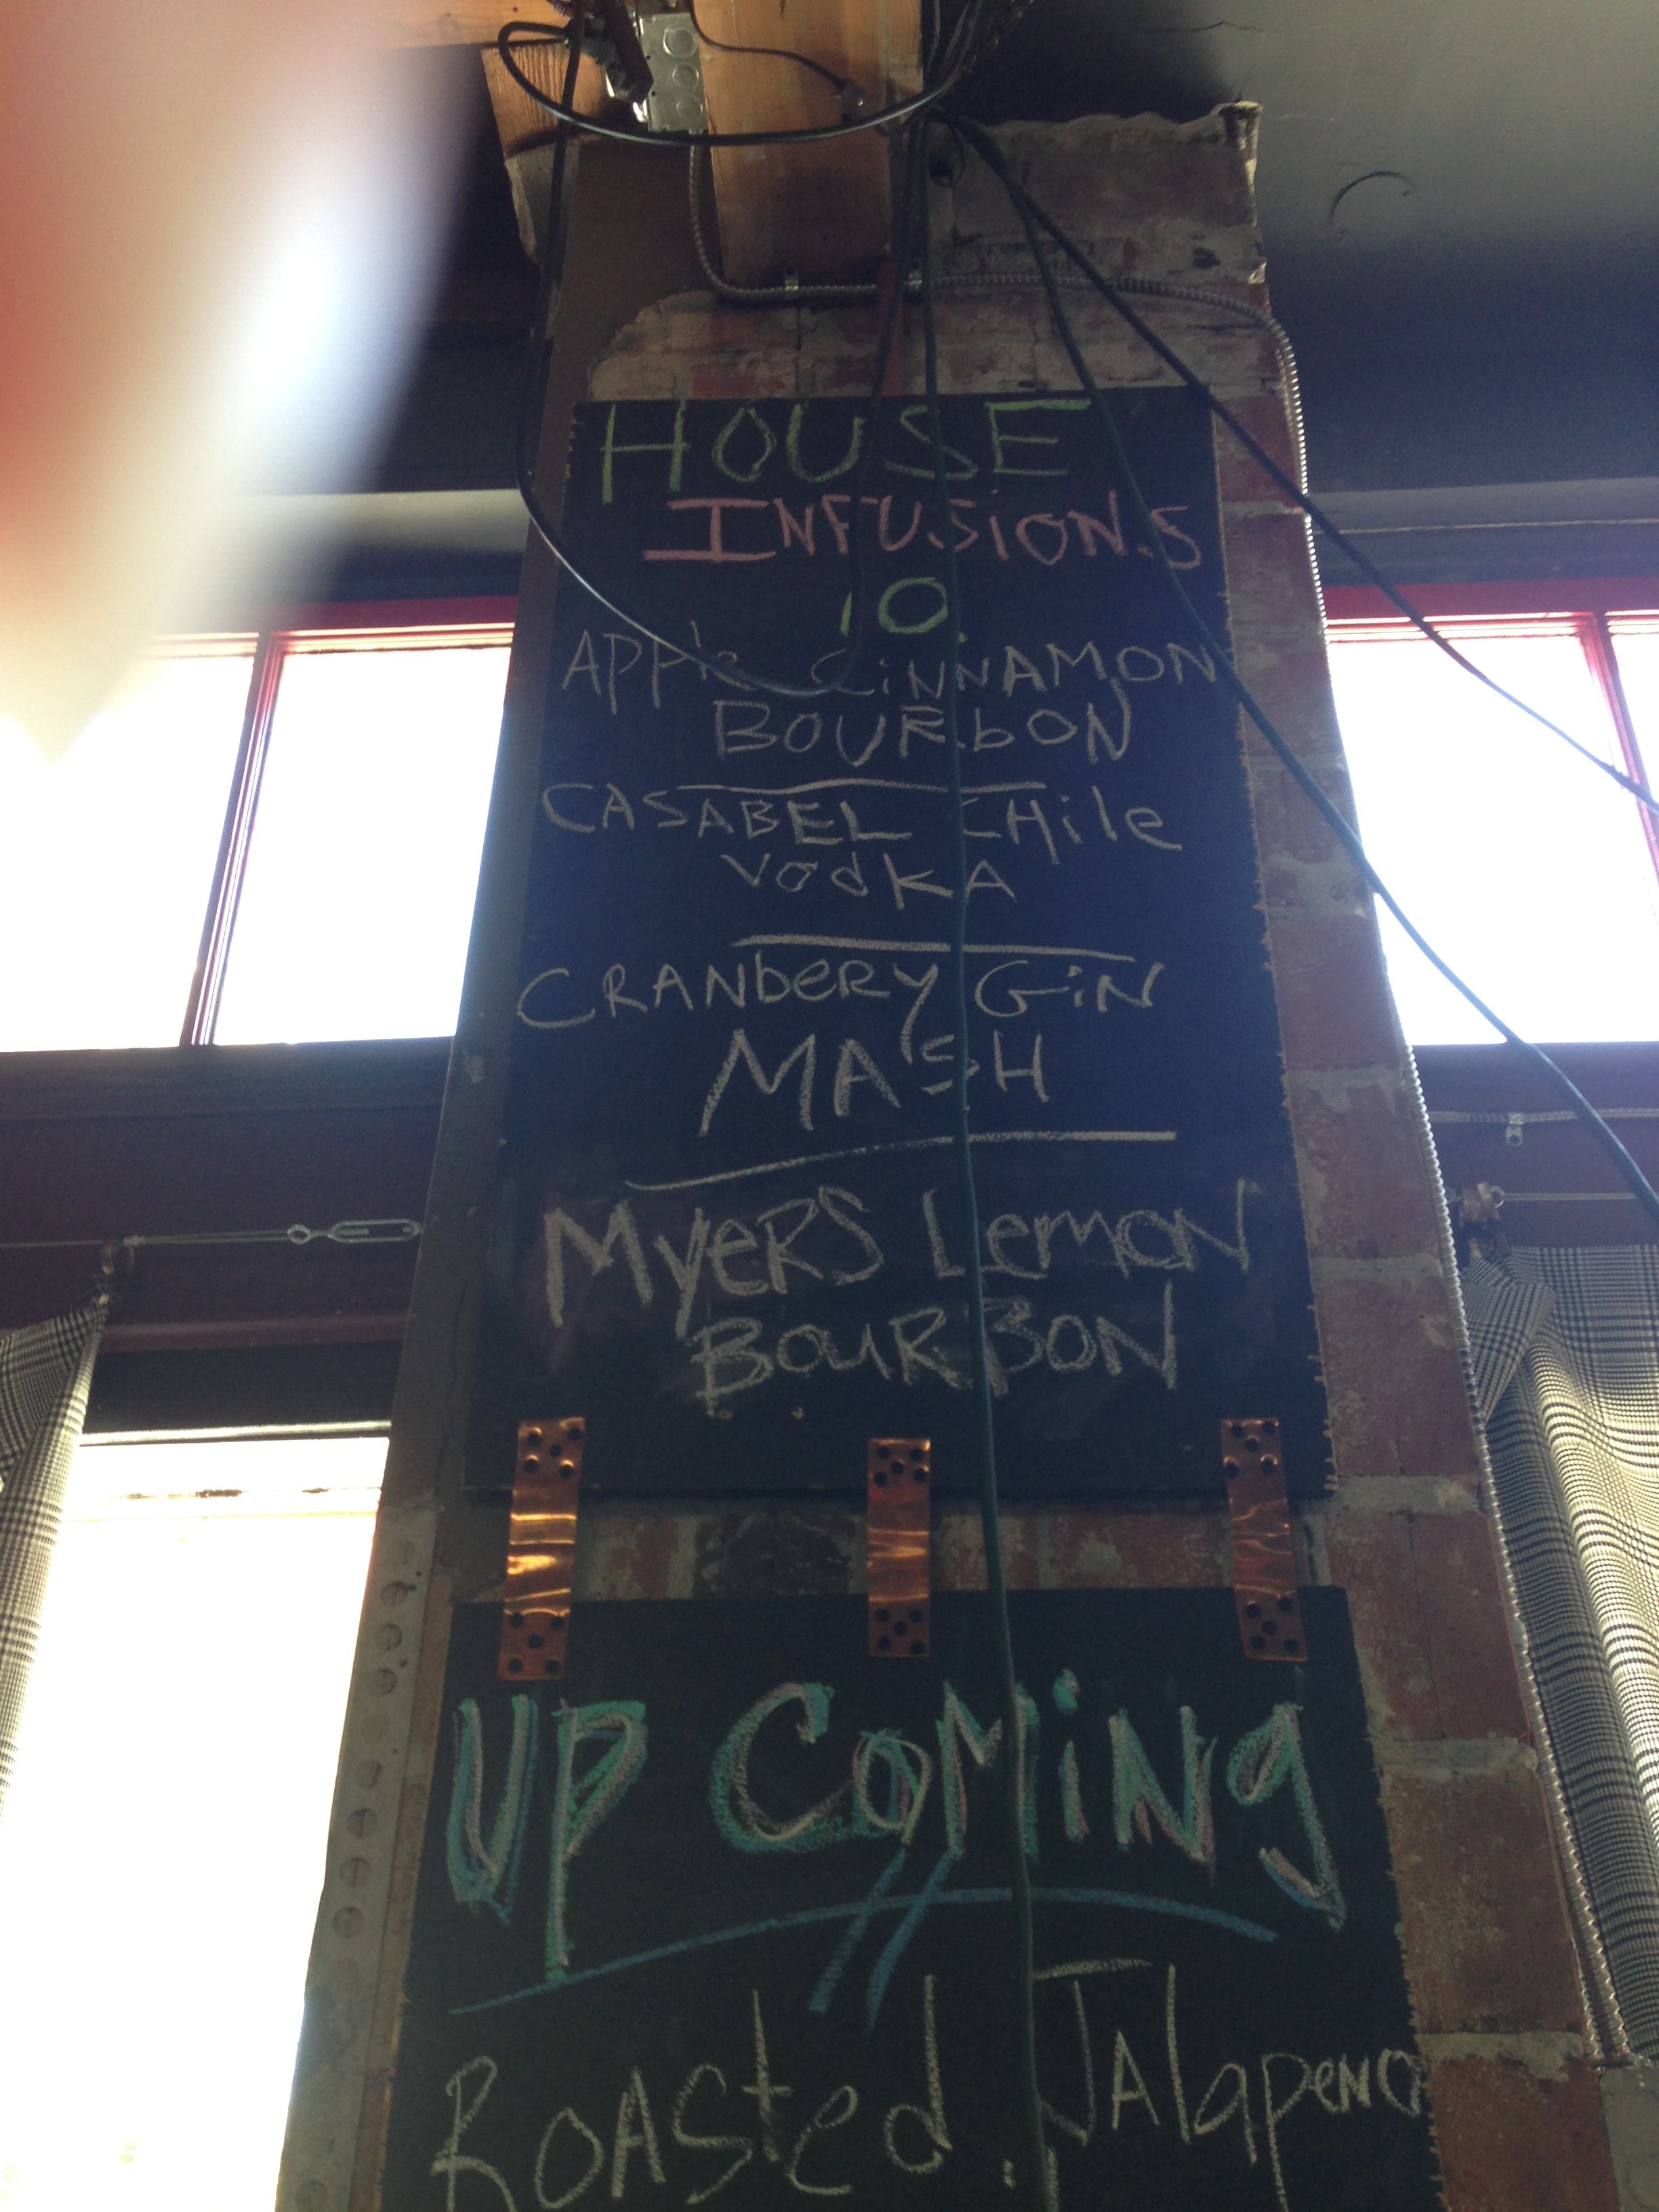 HOUSE
INFUSIONS
10
APPle CiNNAMON
BOURbON
CASABEL CHile
VodKA
CRANbeRy GiN
MASH
MyeRS LemON
BOuRBON
UP CoMiNg
ROASted JAlapeNO